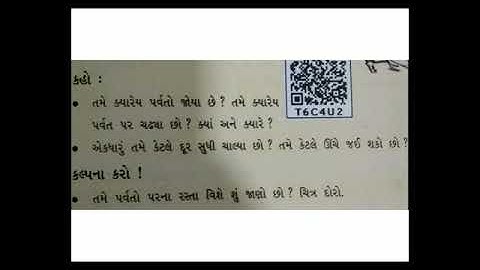 કહો :
T6C4U2
• તમે ક્યારેય પર્વતો જોયા છે ? તમે ક્યારેય
પર્વત પર ચઢ્યા છો ? ક્યાં અને ક્યારે ?
• એકધારું તમે કેટલે દૂર સુધી ચાલ્યા છો ? તમે કેટલે ઊંચે જઈ શકો છો ?
કલ્પના કરો !
• તમે પર્વતો પરના રસ્તા વિશે શું જાણો છો ? ચિત્ર દોરો.